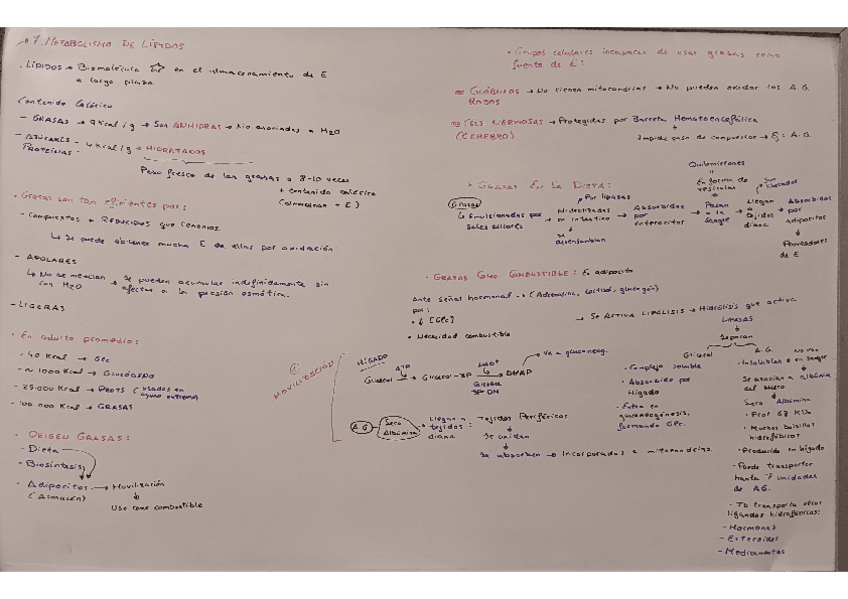 7. METABOLISMO DE LÍPIDOS
· LÍPIDOS → Biomolécula ☆ en el almacenamiento de E
a largo plazo
Contenido Calórico
- GRASAS → 9 Kcal/g → Son ANHIDRAS → No asociadas a H2O
- AZÚCARES -
PROTEÍNAS -
4 Kcal/g → HIDRATADOS
Peso fresco de las grasas → 8-10 veces
+ contenido calórico
(almacenan + E)
· Grasas son tan eficientes por:
- COMPUESTOS + REDUCIDOS que
↳ Se puede obtener mucha E de ellas por oxidación
- APOLARES
↳ No se mezclan
con H2O
→ Se pueden acumular indefinidamente sin
afectar a la presión osmótica.
- LIGERAS
· En adulto promedio:
- 40 Kcal → GPc
- ~ 1000 Kcal → GLUCÓGENO
- 25.000 Kcal → PROTS (usadas en
ayuno extremo)
- 100 000 Kcal → GRASAS
· ORIGEN GRASAS:
- Dieta
- Biosíntesis
- Adipocitos → Movilización
(Almacén)
Uso como combustible
· Grupos celulares incapaces de usar grasas como
fuente de E:
GLÓBULOS
ROJOS
→ No tienen mitocondrias → No pueden oxidar los A.G.
CELS NERVOSAS
(CEREBRO)
→ Protegidas por Barrera Hematoencefálica
Impide paso de compuestos → Ej: A.G.
· GRASAS EN LA DIETA:
Quilomicrones
En forma de
vesículas
Por lipasas
Grasas
↳ Emulsionadas por
sales biliares
→ Hidrolizadas
en intestino
se
desensamblan
→ Absorbidas
por
enterocitos
→ Pasan
a la
sangre
→ Llegan
a
tejidos
diana
→ Absorbidos
por
adipocitos
Proveedores
de E
· GRASAS COMO COMBUSTIBLE: En adipocito
Ante señal hormonal → (Adrenalina, cortisol, glucagón)
por:
· ↓ [GPc]
· Necesidad combustible
→ Se ACTIVA LIPÓLISIS → Hidrólisis que activa
LIPASAS
Separan
① MOVILIZACIÓN
HÍGADO
Glicerol →ATP→ Glicerol-3P →NAD+→ DHAP → Va a gluconeog.
Glicerol
3P DH
A.G. - Sero
Albúmina
→ Llegan a
tejidos
diana:
→ Tejidos Periféricos
Se unidan
Se absorben → Incorporados a mitocondrias.
Glicerol
· Complejo soluble
· Absorbido por
Hígado
· Entra en
gluconeogénesis,
formando GPc.
A.G.
· Insolubles en sangre
Se asocian a albúmina
del suero
Sero Albúmina
· Prot 68 KDa
· Muchos bolsillos
hidrofóbicos
· Producida en hígado
· Puede transportar
hasta 7 unidades
de A.G.
· Tb transporta otros
ligandos hidrofóbicos:
- Hormonas
- Esteroides
- Medicamentos